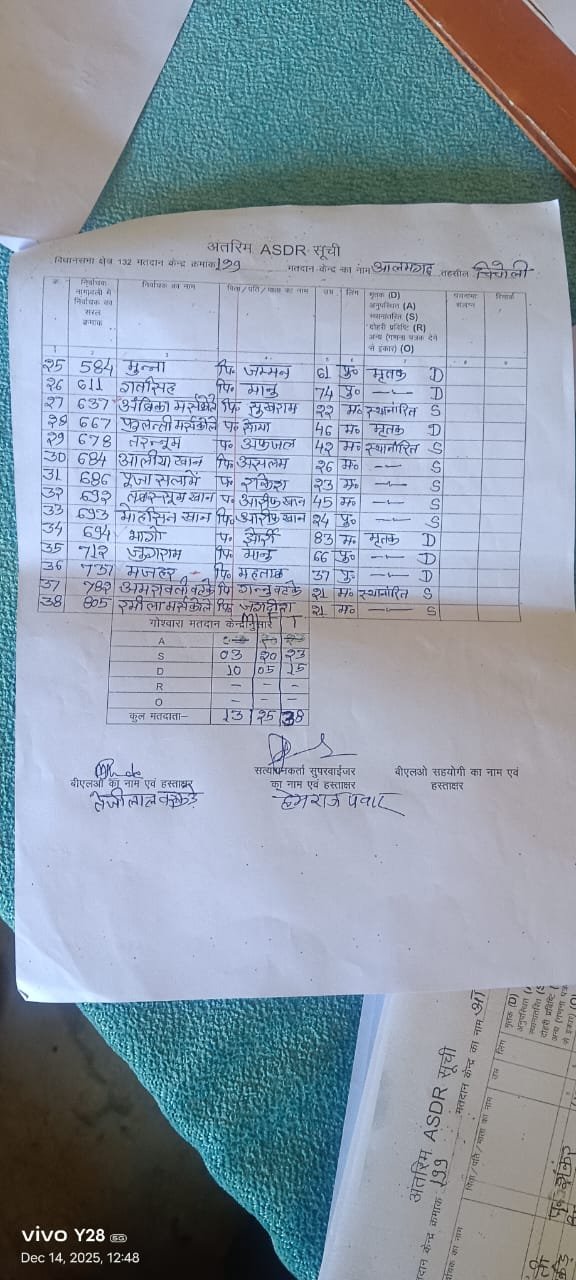 अतरिम ASDR सूची
विधानसभा क्षेत्र 132 मतदान केन्द्र क्रमाक 199 मतदान केन्द्र का नाम आलमगढ़ तहसील चिचोली
क्र. निर्वाचक नामावली में निर्वाचक का सरल क्रमाक निर्वाचक का नाम पिता/पति/माता का नाम उम्र लिंग मृतक (D) अनुपस्थित (A) स्थानातरित (S) दोहरी प्रविष्टि (R) अन्य (गणना पत्रक देने से इंकार) (O) पंचनामा सलग्न
25 584 मुन्ना पि० जम्मन 61 पु० मृतक D
26 611 पि० मानु 74 पु० —॥— D
27 637 पि० सुखराम 22 म० स्थानांतरित S
28 667 प० 46 म० मृतक D
29 678 तरन्नुम प० अफजल 42 म० स्थानांतरित S
30 684 आलीया खान पि० असलम 26 म० —॥— S
31 686 पूजा सलामे प० राकेश 23 म० —॥— S
32 692 खान प० आरीफ खान 45 म० —॥— S
33 693 मोहसिन खान पि० आरीफ खान 24 पु० —॥— S
34 694 भागो प० 83 म० मृतक D
35 712 जुगराम पि० मानु 66 पु० —॥— D
36 737 मजहर पि० महताब 37 पु० —॥— D
37 782 पि० 21 म० स्थानांतरित S
38 805 पि० जगदीश 21 म० —॥— S
गोश्वारा मतदान केन्द्रनुसार M F T
A
S 03 20 23
D 10 05 15
R – – –
O – – –
कुल मतदाता– 13 25 38
बीएलओ का नाम एवं हस्ताक्षर
सत्यापनकर्ता सुपरवाईजर का नाम एवं हस्ताक्षर
हेमराज पवार
बीएलओ सहयोगी का नाम एवं हस्ताक्षर
अतरिम ASDR सूची
केन्द्र क्रमाक 199 मतदान केन्द्र का नाम
पिता/पति/माता का नाम उम्र लिंग मृतक (D)
vivo Y28 5G
Dec 14, 2025, 12:48